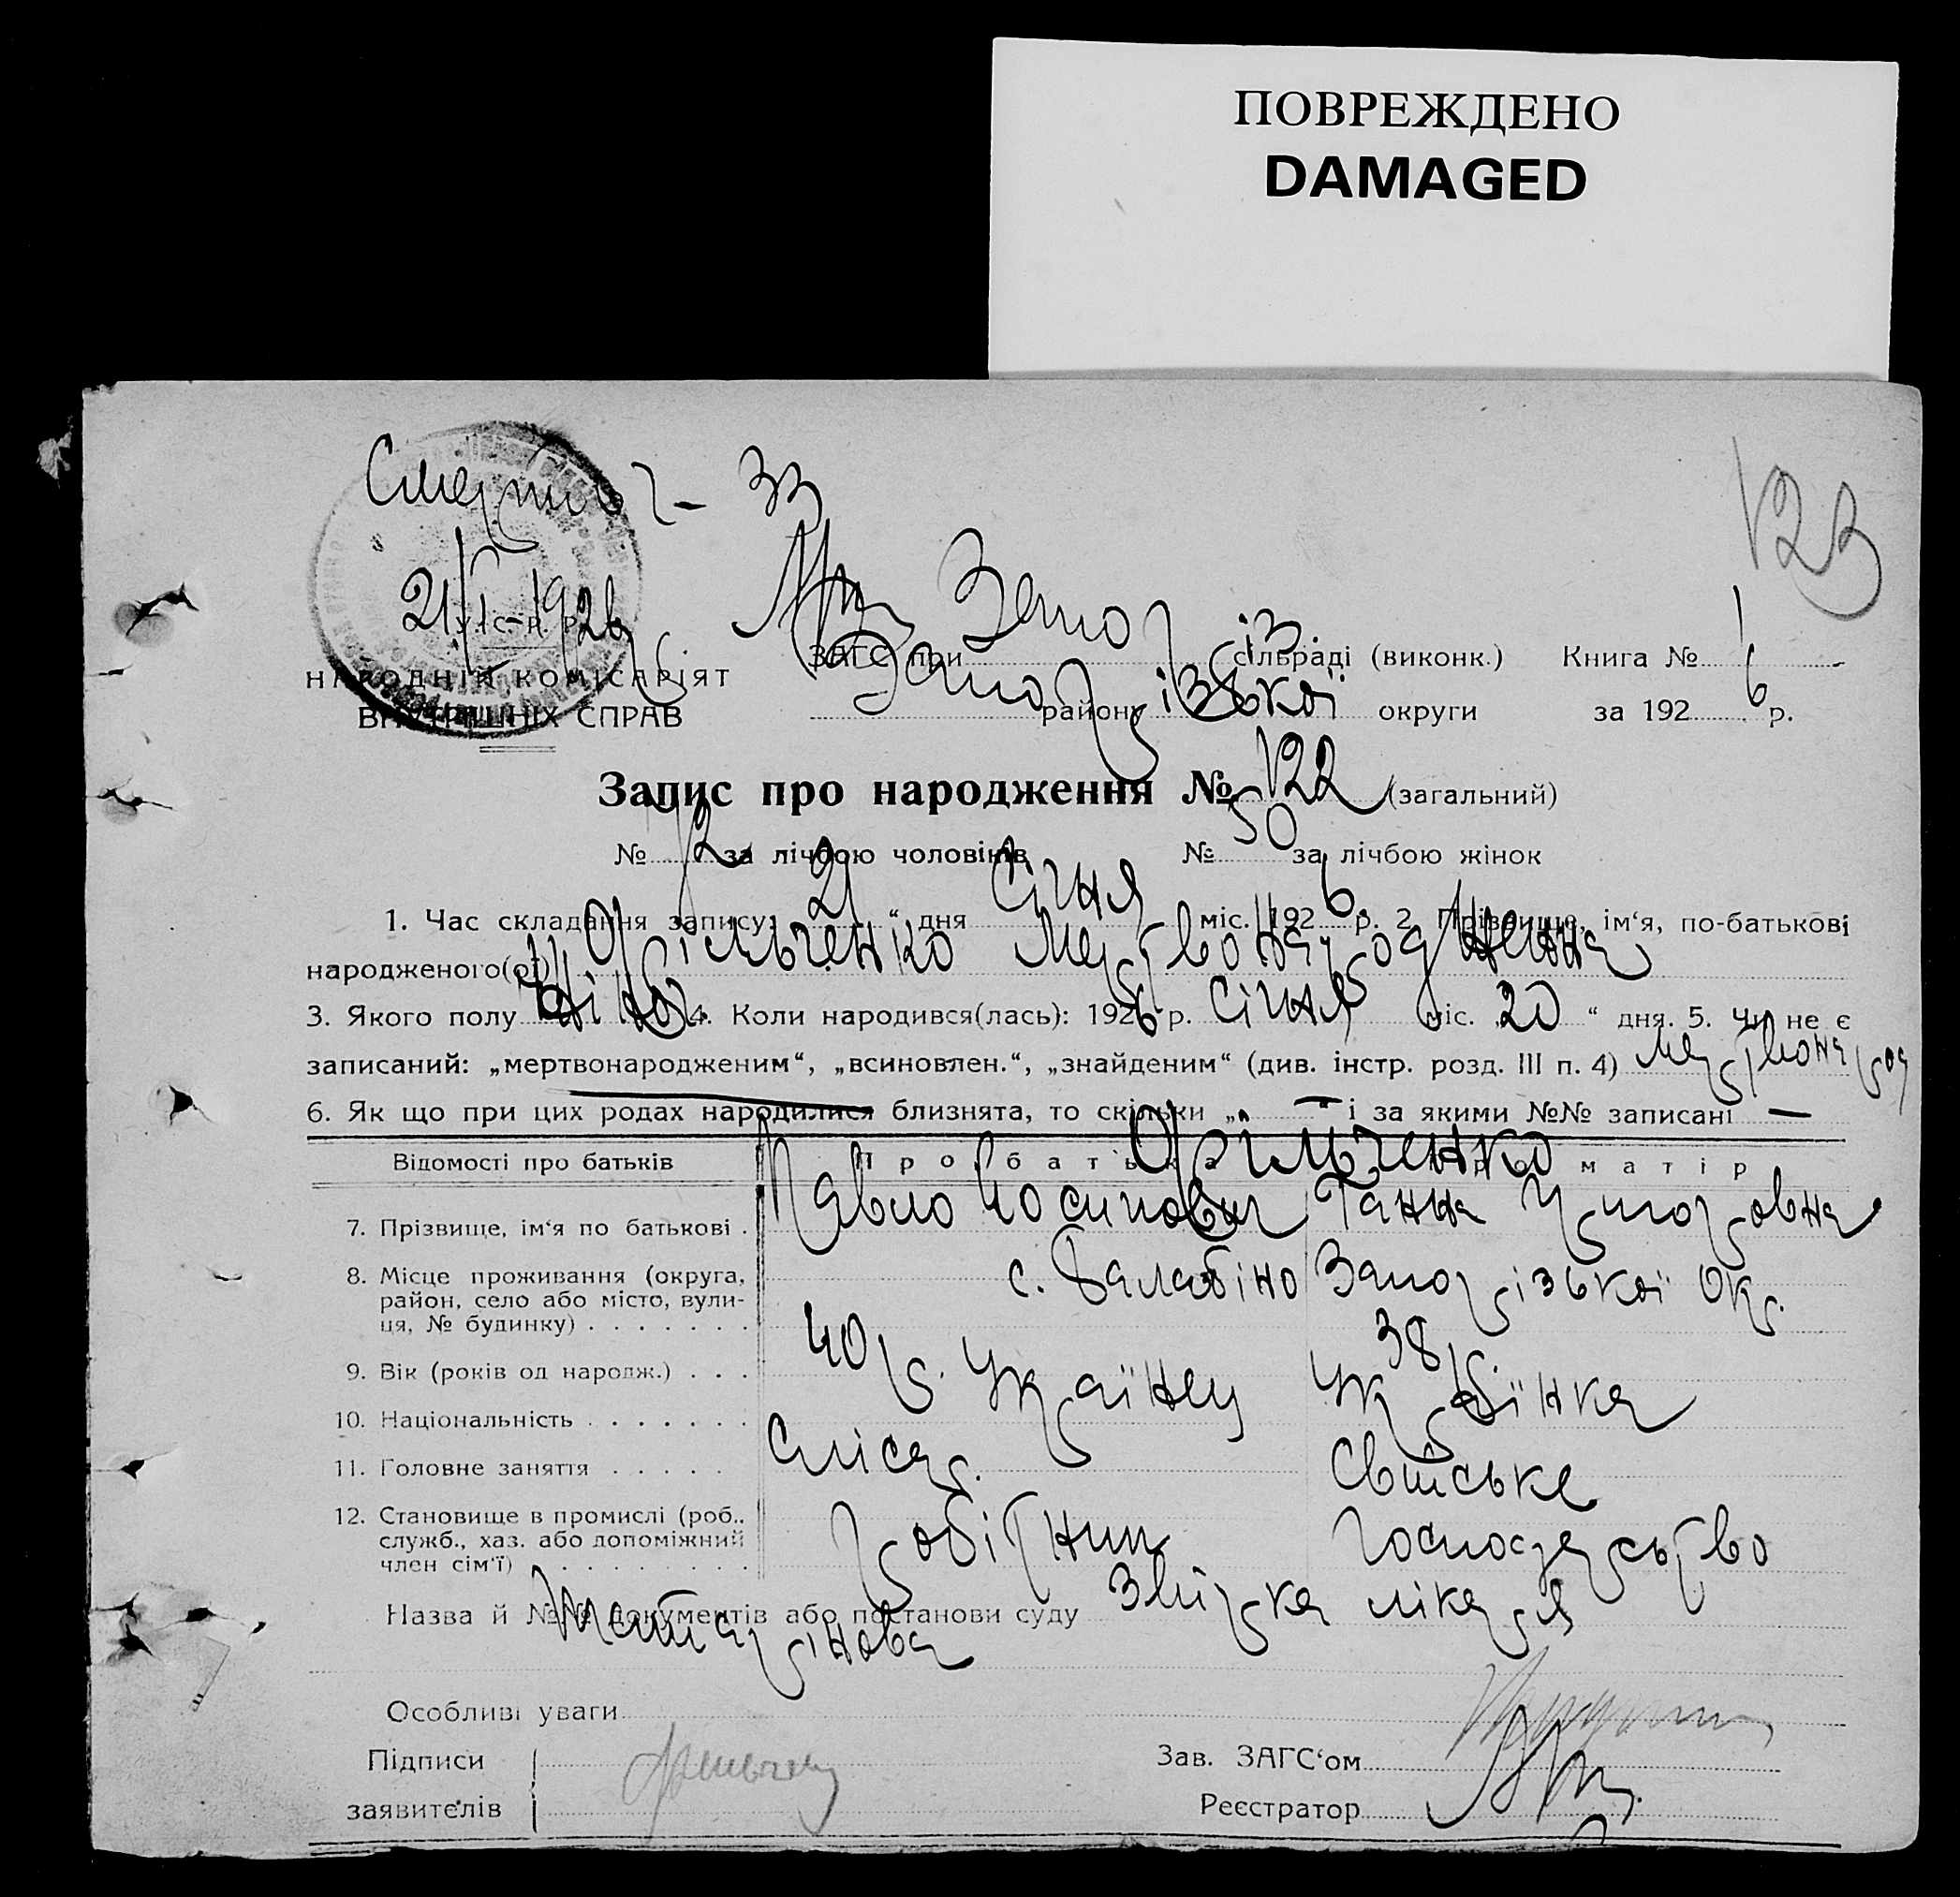 ПОВРЕЖДЕНО
DAMAGED
123
33
21/I-1926
У. С. Р. Р.
НАРОДНІЙ КОМІСАРІЯТ
ВНУТРІШНІХ СПРАВ
ЗАГС при Запоріз. сільраді (виконк.) Книга №
району Запорізької округи за 1926 р.
Запис про народження № 122 (загальний)
№ 72 за лічбою чоловіків № 50 за лічбою жінок
1. Час складання запису: 21 “ дня Січня міс. 1926 р. 2. Прізвище, ім‘я, по-батькові
народженого(ої) Мертвонароджена
3. Якого полу Жіноч. 4. Коли народився(лась): 1926 р. Січня міс. „20“ дня. 5. Чи не є
записаний: „мертвонародженим“, „всиновлен.“, „знайденим“ (див. інстр. розд. III п. 4) мертвонарод
6. Як що при цих родах народилися близнята, то скільки „ — “ і за якими №№ записані —
Відомості про батьків Про батька Про матір
7. Прізвище, ім‘я по батькові . Павло Йосипович Ганна Григоровна
8. Місце проживання (округа, район, село або місто, вулиця, № будинку) с. Балабіно Запорізької Окр.
9. Вік (років од народж.) . . . 40 р. 38 р.
10. Національність Українец Українка
11. Головне заняття Слісар. Свитське
12. Становище в промислі (роб., служб., хаз. або допоміжний член сім‘ї) робітник господарьство
Назва й №№ документів або постанови суду Звірка лікаря
Особливі уваги
Підписи
заявителів
Зав. ЗАГС‘ом
Реєстратор